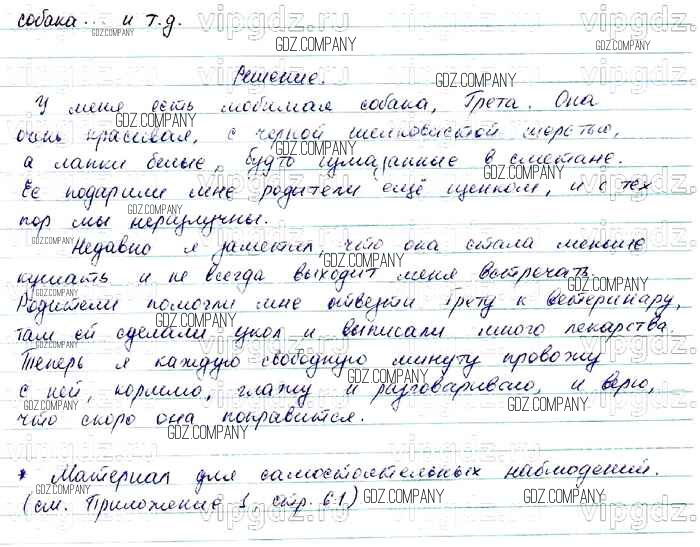 собака... и т.д.
Решение.
У меня есть любимая собака, Грета. Она
очень красивая, с черной шелковистой шерстью,
а лапки белые, будто измазанные в сметане.
Её подарили мне родители ещё щенком, и с тех
пор мы неразлучны.
Недавно я заметил, что она стала меньше
кушать и не всегда выходит меня встречать.
Родители помогли мне отвезти Грету к ветеринару,
там ей сделали укол и выписали много лекарства.
Теперь я каждую свободную минуту провожу
с ней, кормлю, глажу и разговариваю, и верю,
что скоро она поправится.
* Материал для самостоятельных наблюдений.
(см. Приложение 1, стр. 61)